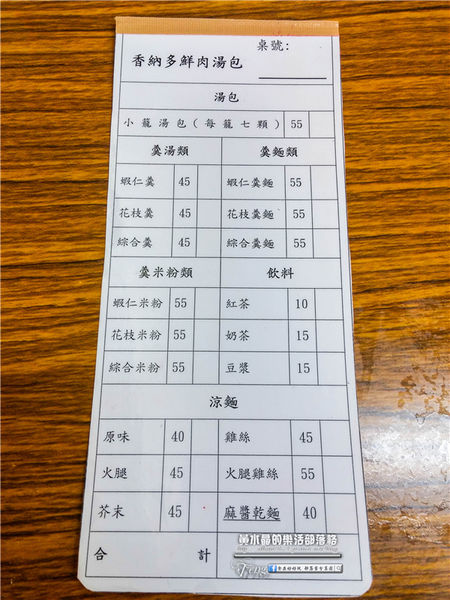 桌號:
香納多鮮肉湯包
湯包
小籠湯包(每籠七顆) 55
羹湯類 羹麵類
蝦仁羹 45 蝦仁羹麵 55
花枝羹 45 花枝羹麵 55
綜合羹 45 綜合羹麵 55
羹米粉類 飲料
蝦仁米粉 55 紅茶 10
花枝米粉 55 奶茶 15
綜合米粉 55 豆漿 15
涼麵
原味 40 雞絲 45
火腿 45 火腿雞絲 55
芥末 45 麻醬乾麵 40
合計
黃水晶的樂活部落格